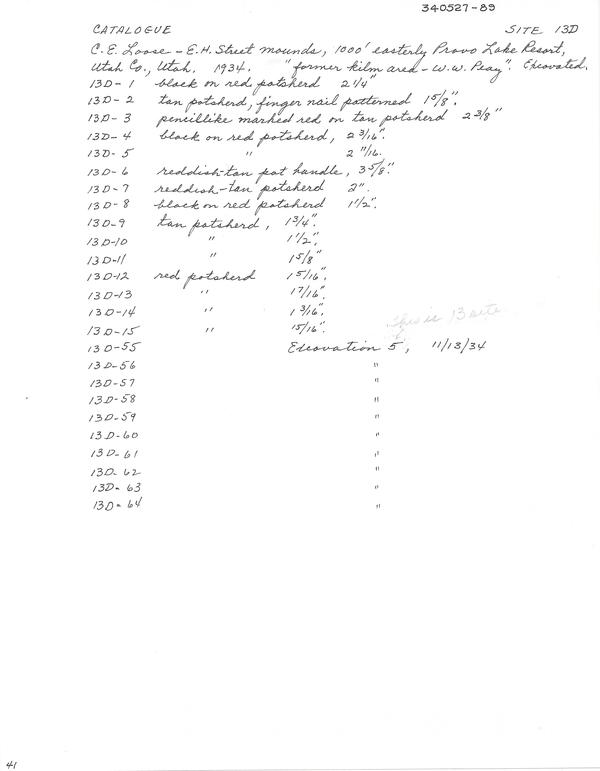 340527-89
CATALOGUE SITE 13D
C. E. Loose - E.H. Street mounds, 1000' easterly Provo Lake Resort,
Utah Co., Utah. 1934. "former kilm area - W.W. Peay". Excavated.
13D- 1 black on red potsherd 2 1/4"
13D- 2 tan potsherd, finger nail patterned 1 5/8".
13D- 3 pencillike marked red on tan potsherd 2 3/8"
13D- 4 black on red potsherd, 2 3/16".
13D- 5 " 2 11/16.
13D- 6 reddish-tan pot handle, 3 5/8".
13D- 7 reddish-tan potsherd 2".
13D- 8 black on red potsherd 1 1/2".
13D-9 tan potsherd, 1 3/4".
13D-10 " 1 1/2".
13D-11 " 1 5/8"
13D-12 red potsherd 1 5/16".
13D-13 " 1 7/16".
13D-14 " 1 3/16".
13D-15 " 15/16".
This is 13 site
13D-55 Excavation 5, 11/13/34
13D-56 "
13D-57 "
13D-58 "
13D-59 "
13D-60 "
13D-61 "
13D-62 "
13D-63 "
13D-64 "
41